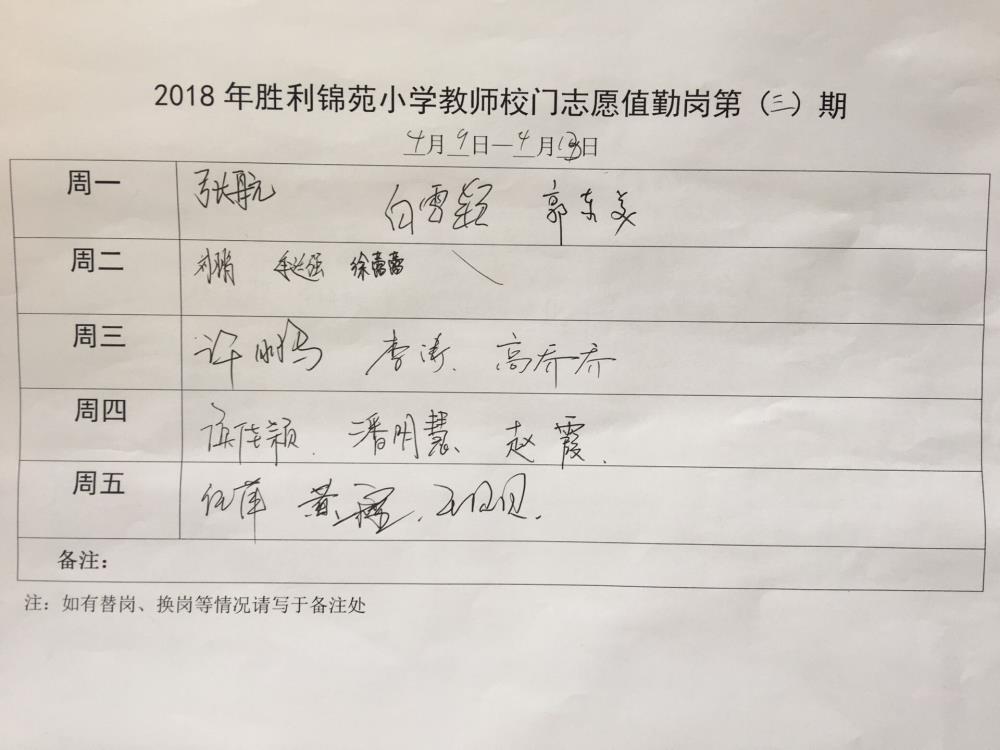 2018年胜利锦苑小学教师校门志愿值勤岗第（三）期
4月9日—4月13日
周一 张航 白雪颖 郭东美
周二 刘鹏 徐蕾蕾
周三 李涛. 高乔乔
周四 潘明慧、赵霞.
周五 伍萍
备注：
注：如有替岗、换岗等情况请写于备注处